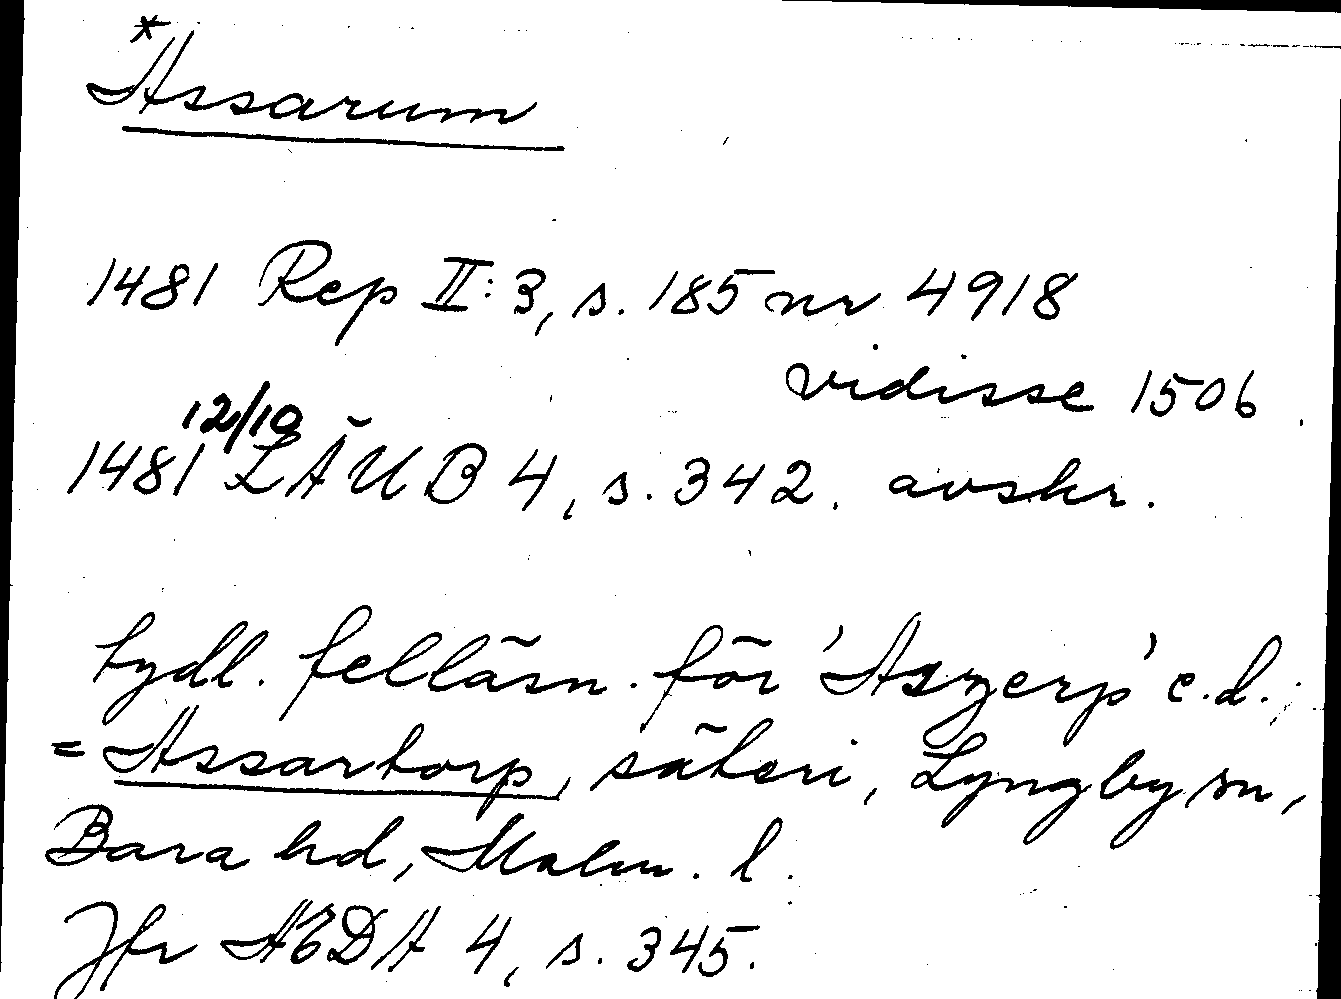 *Assarum
1481 Rep II:3, s. 185 nr 4918
vidisse 1506.
12/10
1481 LÄUB 4, s. 342. avskr.
tydl. felläsn. för 'Aszerp' e.d.;
= Assartorp, säteri, Lyngby sn,
Bara hd, Malm. l.
Jfr ÆDA 4, s. 345.